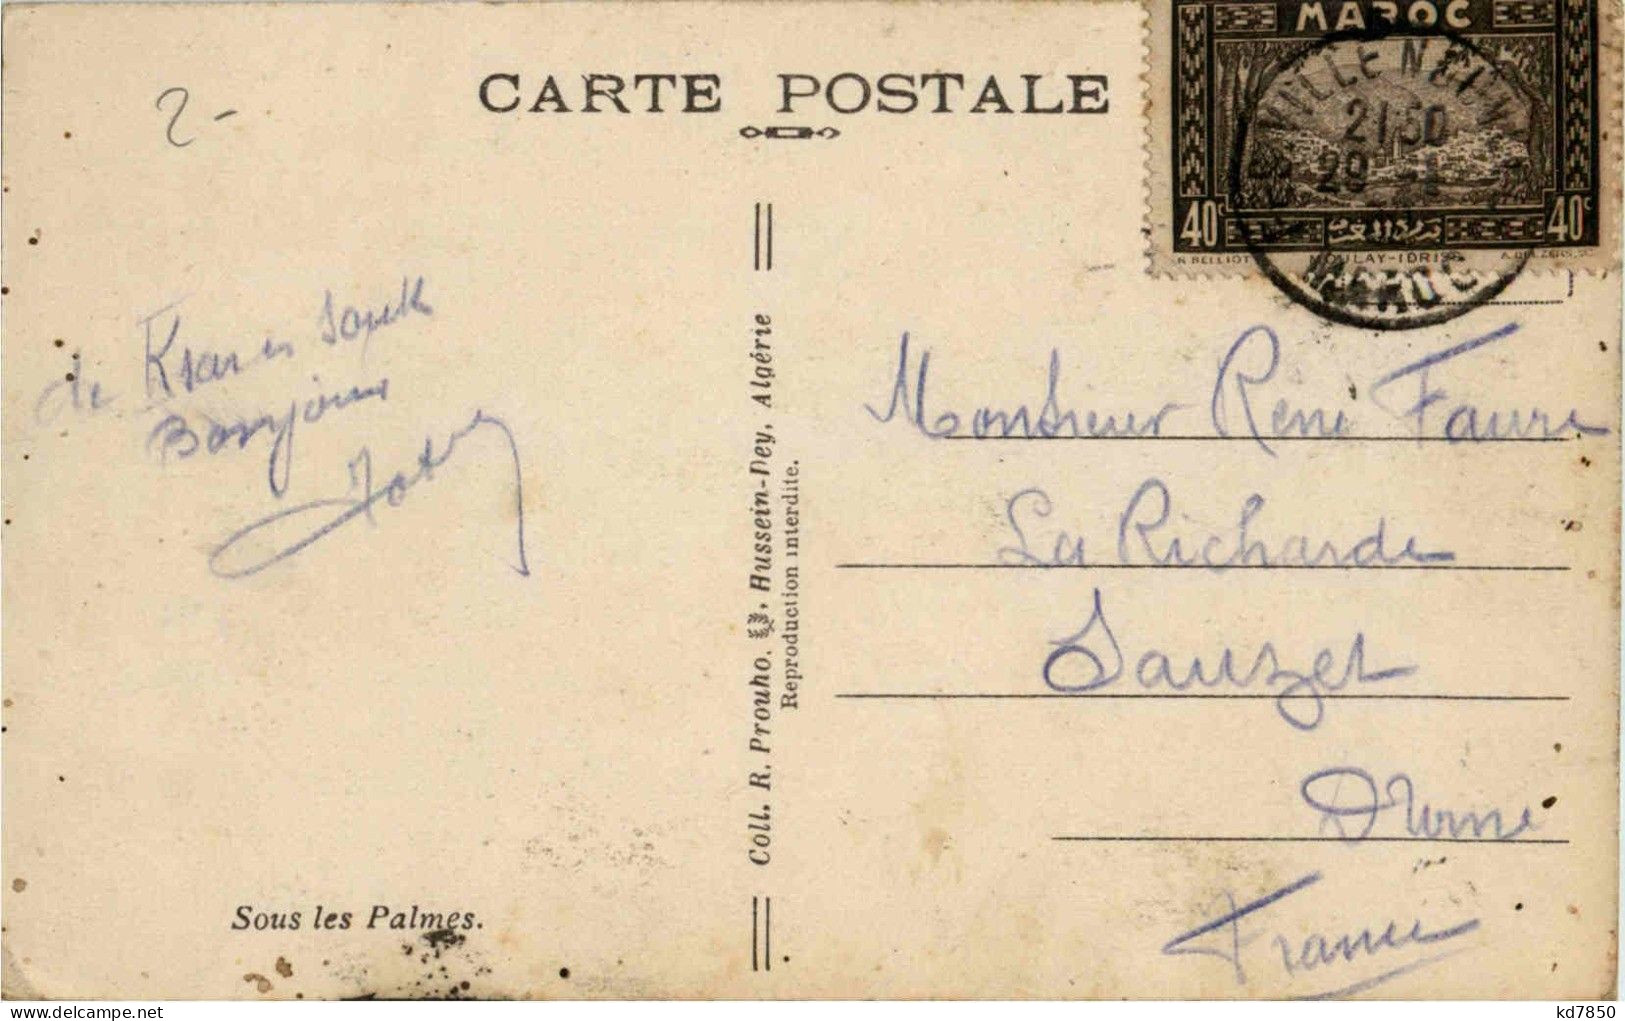 2-
CARTE POSTALE
MAROC
VILLE NOUV
21 30
29
40c
40c
MOULAY-IDRISS
MAROC
de Ksar es Souk
Bonjour
Coll. R. Prouho. Hussein-Dey, Algérie
Reproduction interdite.
Monsieur René Faure
La Richarde
Sauzet
Drôme
France
Sous les Palmes.
kd7850